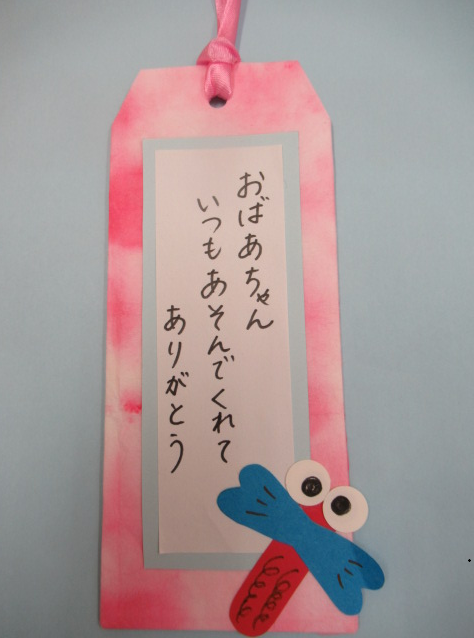 おばあちゃん
いつもあそんでくれて
ありがとう